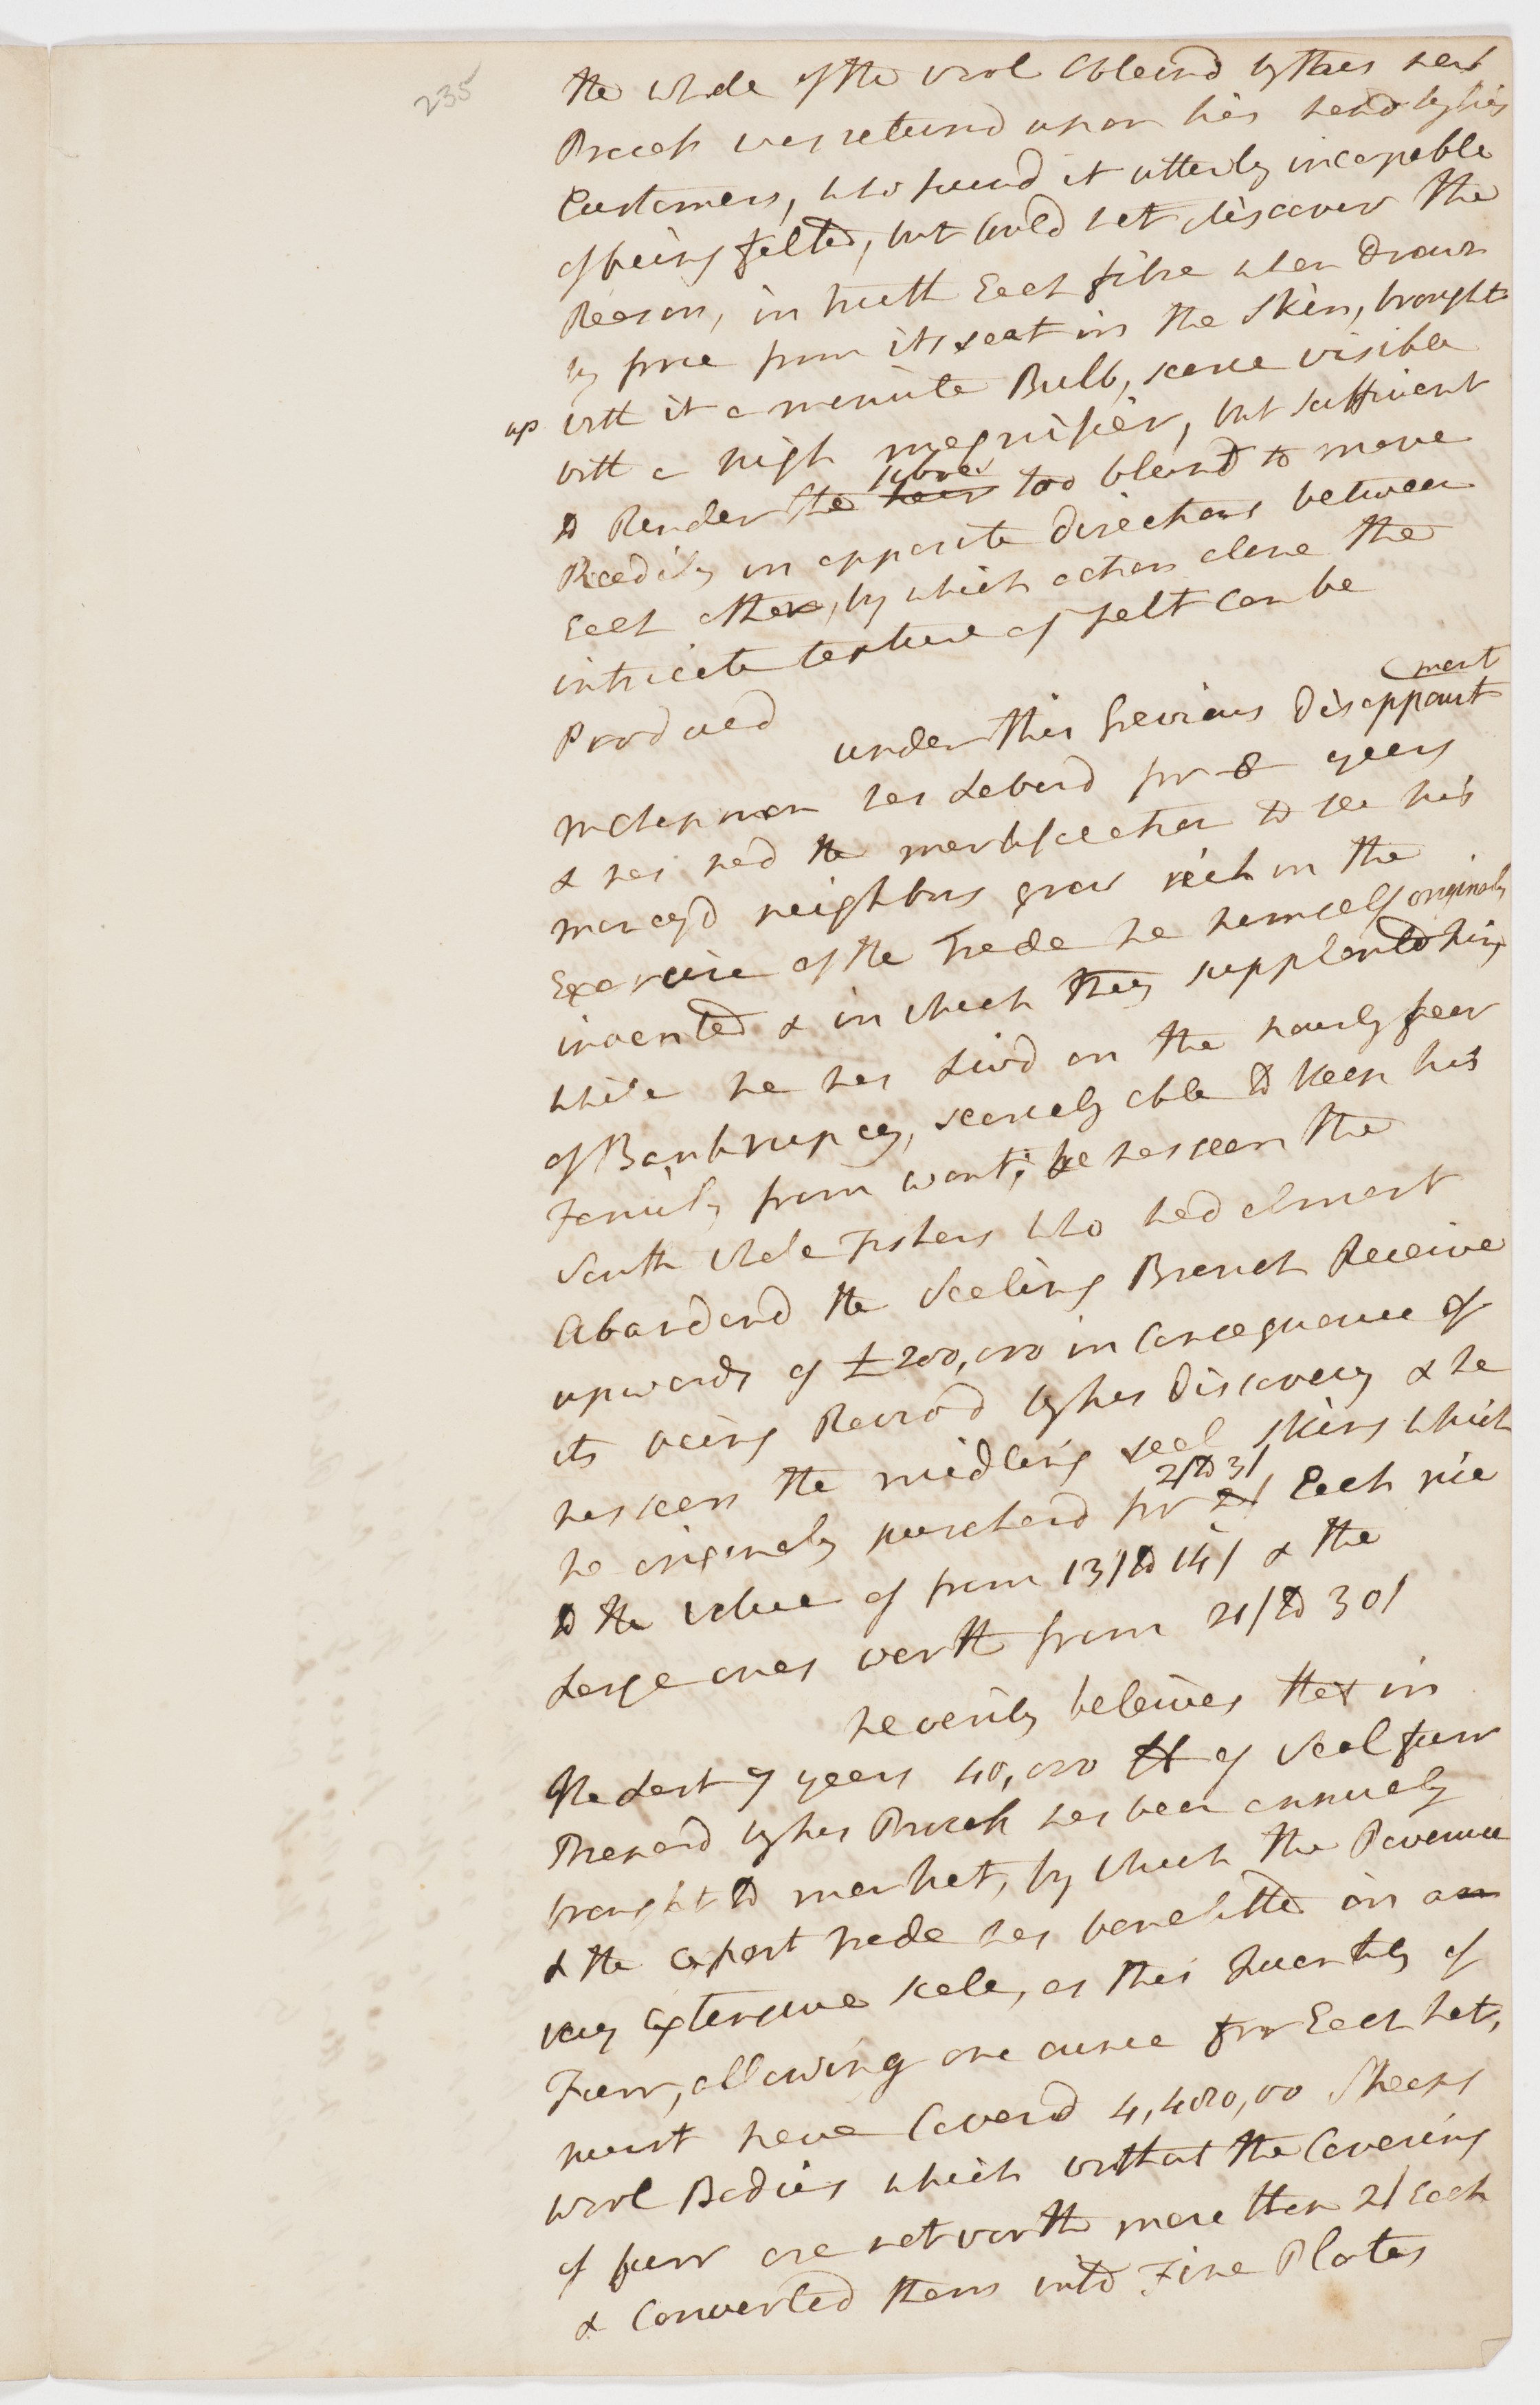 235
the whole of the wool Obtaind by this new
Process was returnd upon his hand by his
Customers, who found it utterly incapable
of being felted, but Could not discover the
Reason, in truth Each fibre when drawn
by force from its seat in the Skin, brought
up with it a minute Bulb, scarce visible
with a high magnifier, but sufficient
to Render the hair fibres too blunt to move
Readily in opposite directions between
Each other, by which action alone the
intricate texture of felt Can be
Producd
under this Grevious Disappointment
Mr Chapman has Labord for 8 years
& has had the mortification to see his
moneyd neighbors grow rich in the
Exercise of the Trade he himself originaly
invented & in which they supplanted him,
while he has Livd in the hourly fear
of Bankrupcy, scarcely able to keep his
Family from want; he has seen the
South whale Fishers who had almost
Abandond the Sealing Branch Receive
upwards of £200,000 in Consequence of
its being Revivd by his Discovery & he
has seen the midling seal skins which
he originaly purchasd for 2/ to 3/ Each rise
to the value of from 13/ to 14/ & the
Large ones worth from 21/ to 30/
he verily beleives that in
the Last 7 years 40,000 lb of Seal furr
Prepard by his Process has been annualy
brought to market, by which the Revenue
& the Export trade has benefitted on a
very Extensive scale, as this Quantity of
Furr, allowing one ounce for Each hat,
must have Coverd 4,480,00 Sheeps
wool Bodies which without the Covering
of furr are not worth more than 2/ Each
& Converted them into Fine Plates